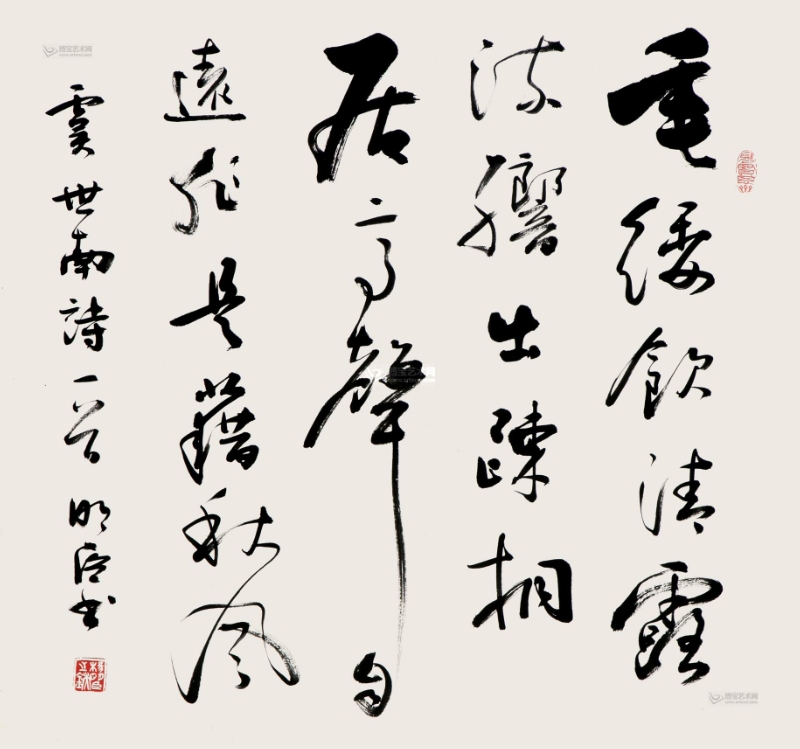 垂緌飲清露
流響出疎桐
居高聲自
遠非是藉秋風
虞世南詩一首 明臣书